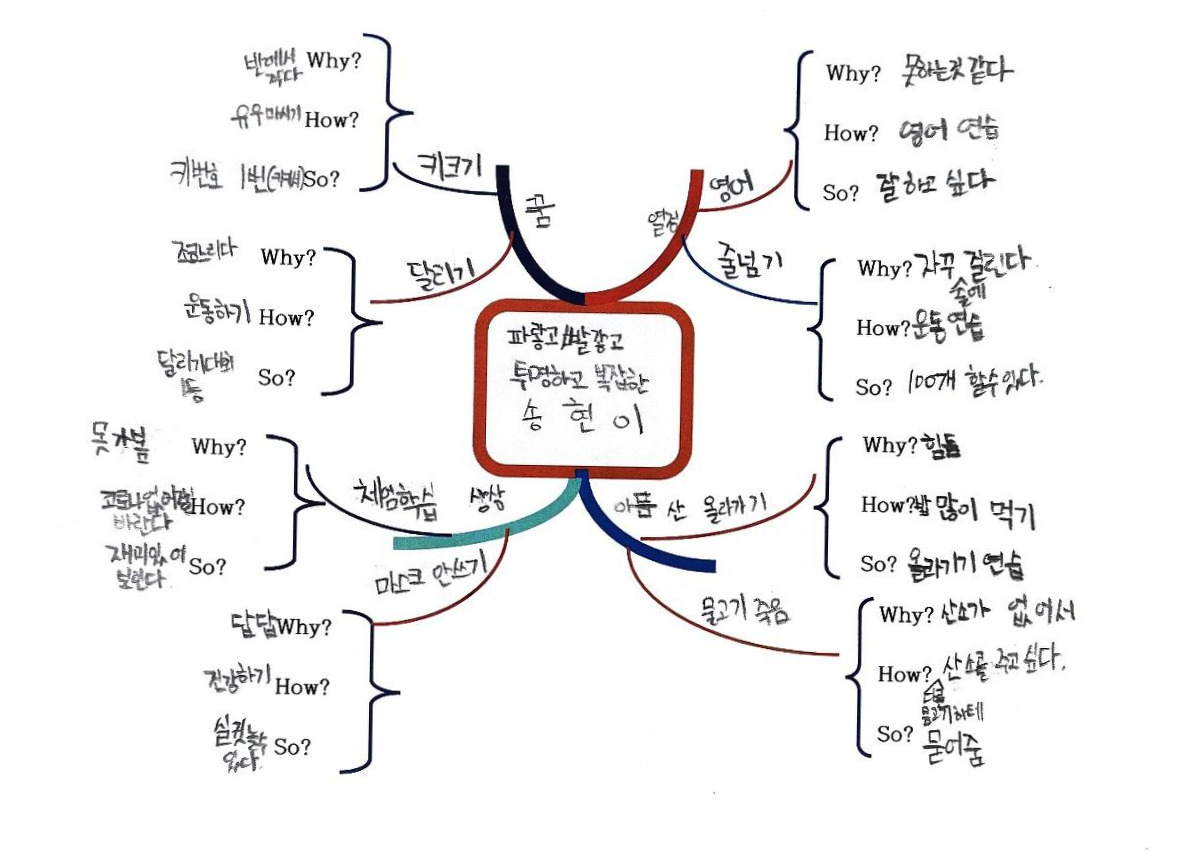 파랗고 빨갛고
투명하고 복잡한
송현이
꿈
키크기
Why? 반에서
작다
How? 유우마시기
So? 키번호 1번
달리기
Why? 조금느리다
How? 운동하기
So? 달리기대회
1등
열정
영어
Why? 못하는것 같다
How? 영어 연습
So? 잘하고 싶다
줄넘기
Why? 자꾸 걸린다
줄에
How? 운동 연습
So? 100개 할수있다.
상상
체험학습
Why? 못가봄
How? 코로나없어지길
바란다
So? 재미있어
보인다.
마스크 안쓰기
Why? 답답
How? 건강하기
So? 실컷놀수
있다.
아픔
산 올라가기
Why? 힘듦
How? 밥 많이 먹기
So? 올라가기 연습
물고기 죽음
Why? 산소가 없어서
How? 산소를 주고싶다.
물고기하테
So? 묻어줌